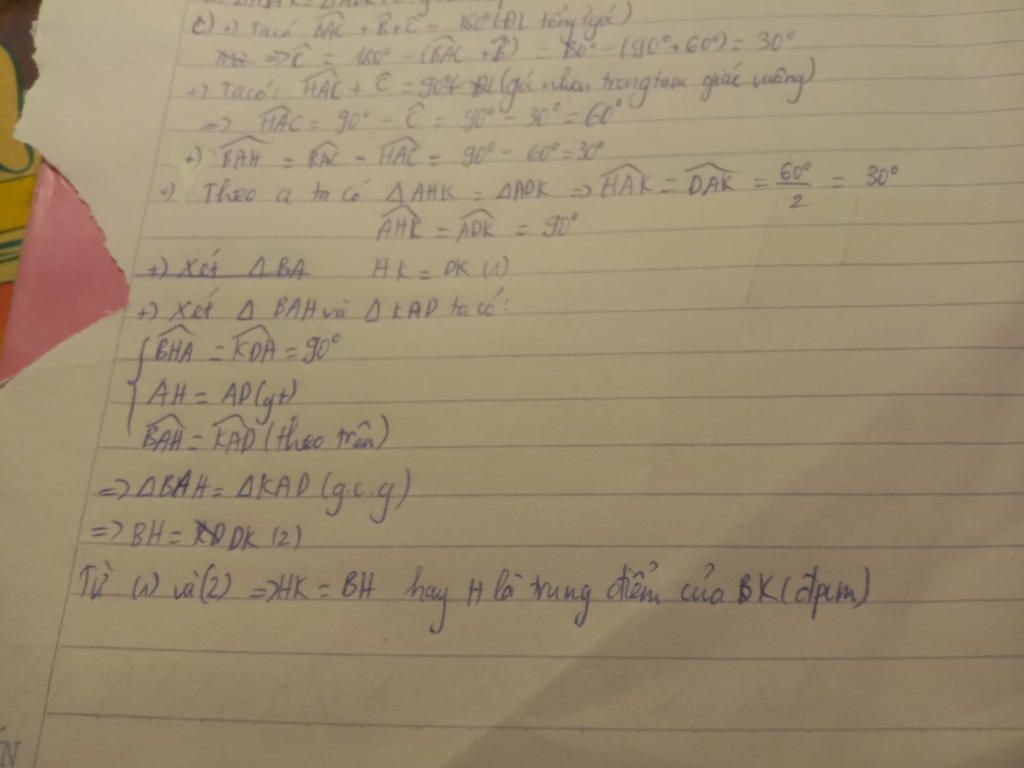 c) +) Ta có BAC + B + C = 180° (ĐL tổng 3 góc)
=> C = 180° - (BAC + B) = 180° - (90° + 60°) = 30°
+) Ta có: HAC + C = 90° ĐL (góc nhọn trong tam giác vuông)
=> HAC = 90° - C = 90° - 30° = 60°
+) BAH = BAC - HAC = 90° - 60° = 30°
+) Theo a ta có Δ AHK = Δ ADK => HAK = DAK = 60°/2 = 30°
AHK = ADK = 90°
+) Xét Δ BA HK = DK (1)
+) Xét Δ BAH và Δ KAD ta có:
BHA = KDA = 90°
AH = AD (gt)
BAH = KAD (theo trên)
=> Δ BAH = Δ KAD (g.c.g)
=> BH = DK (2)
Từ (1) và (2) => HK = BH hay H là trung điểm của BK (đpcm)